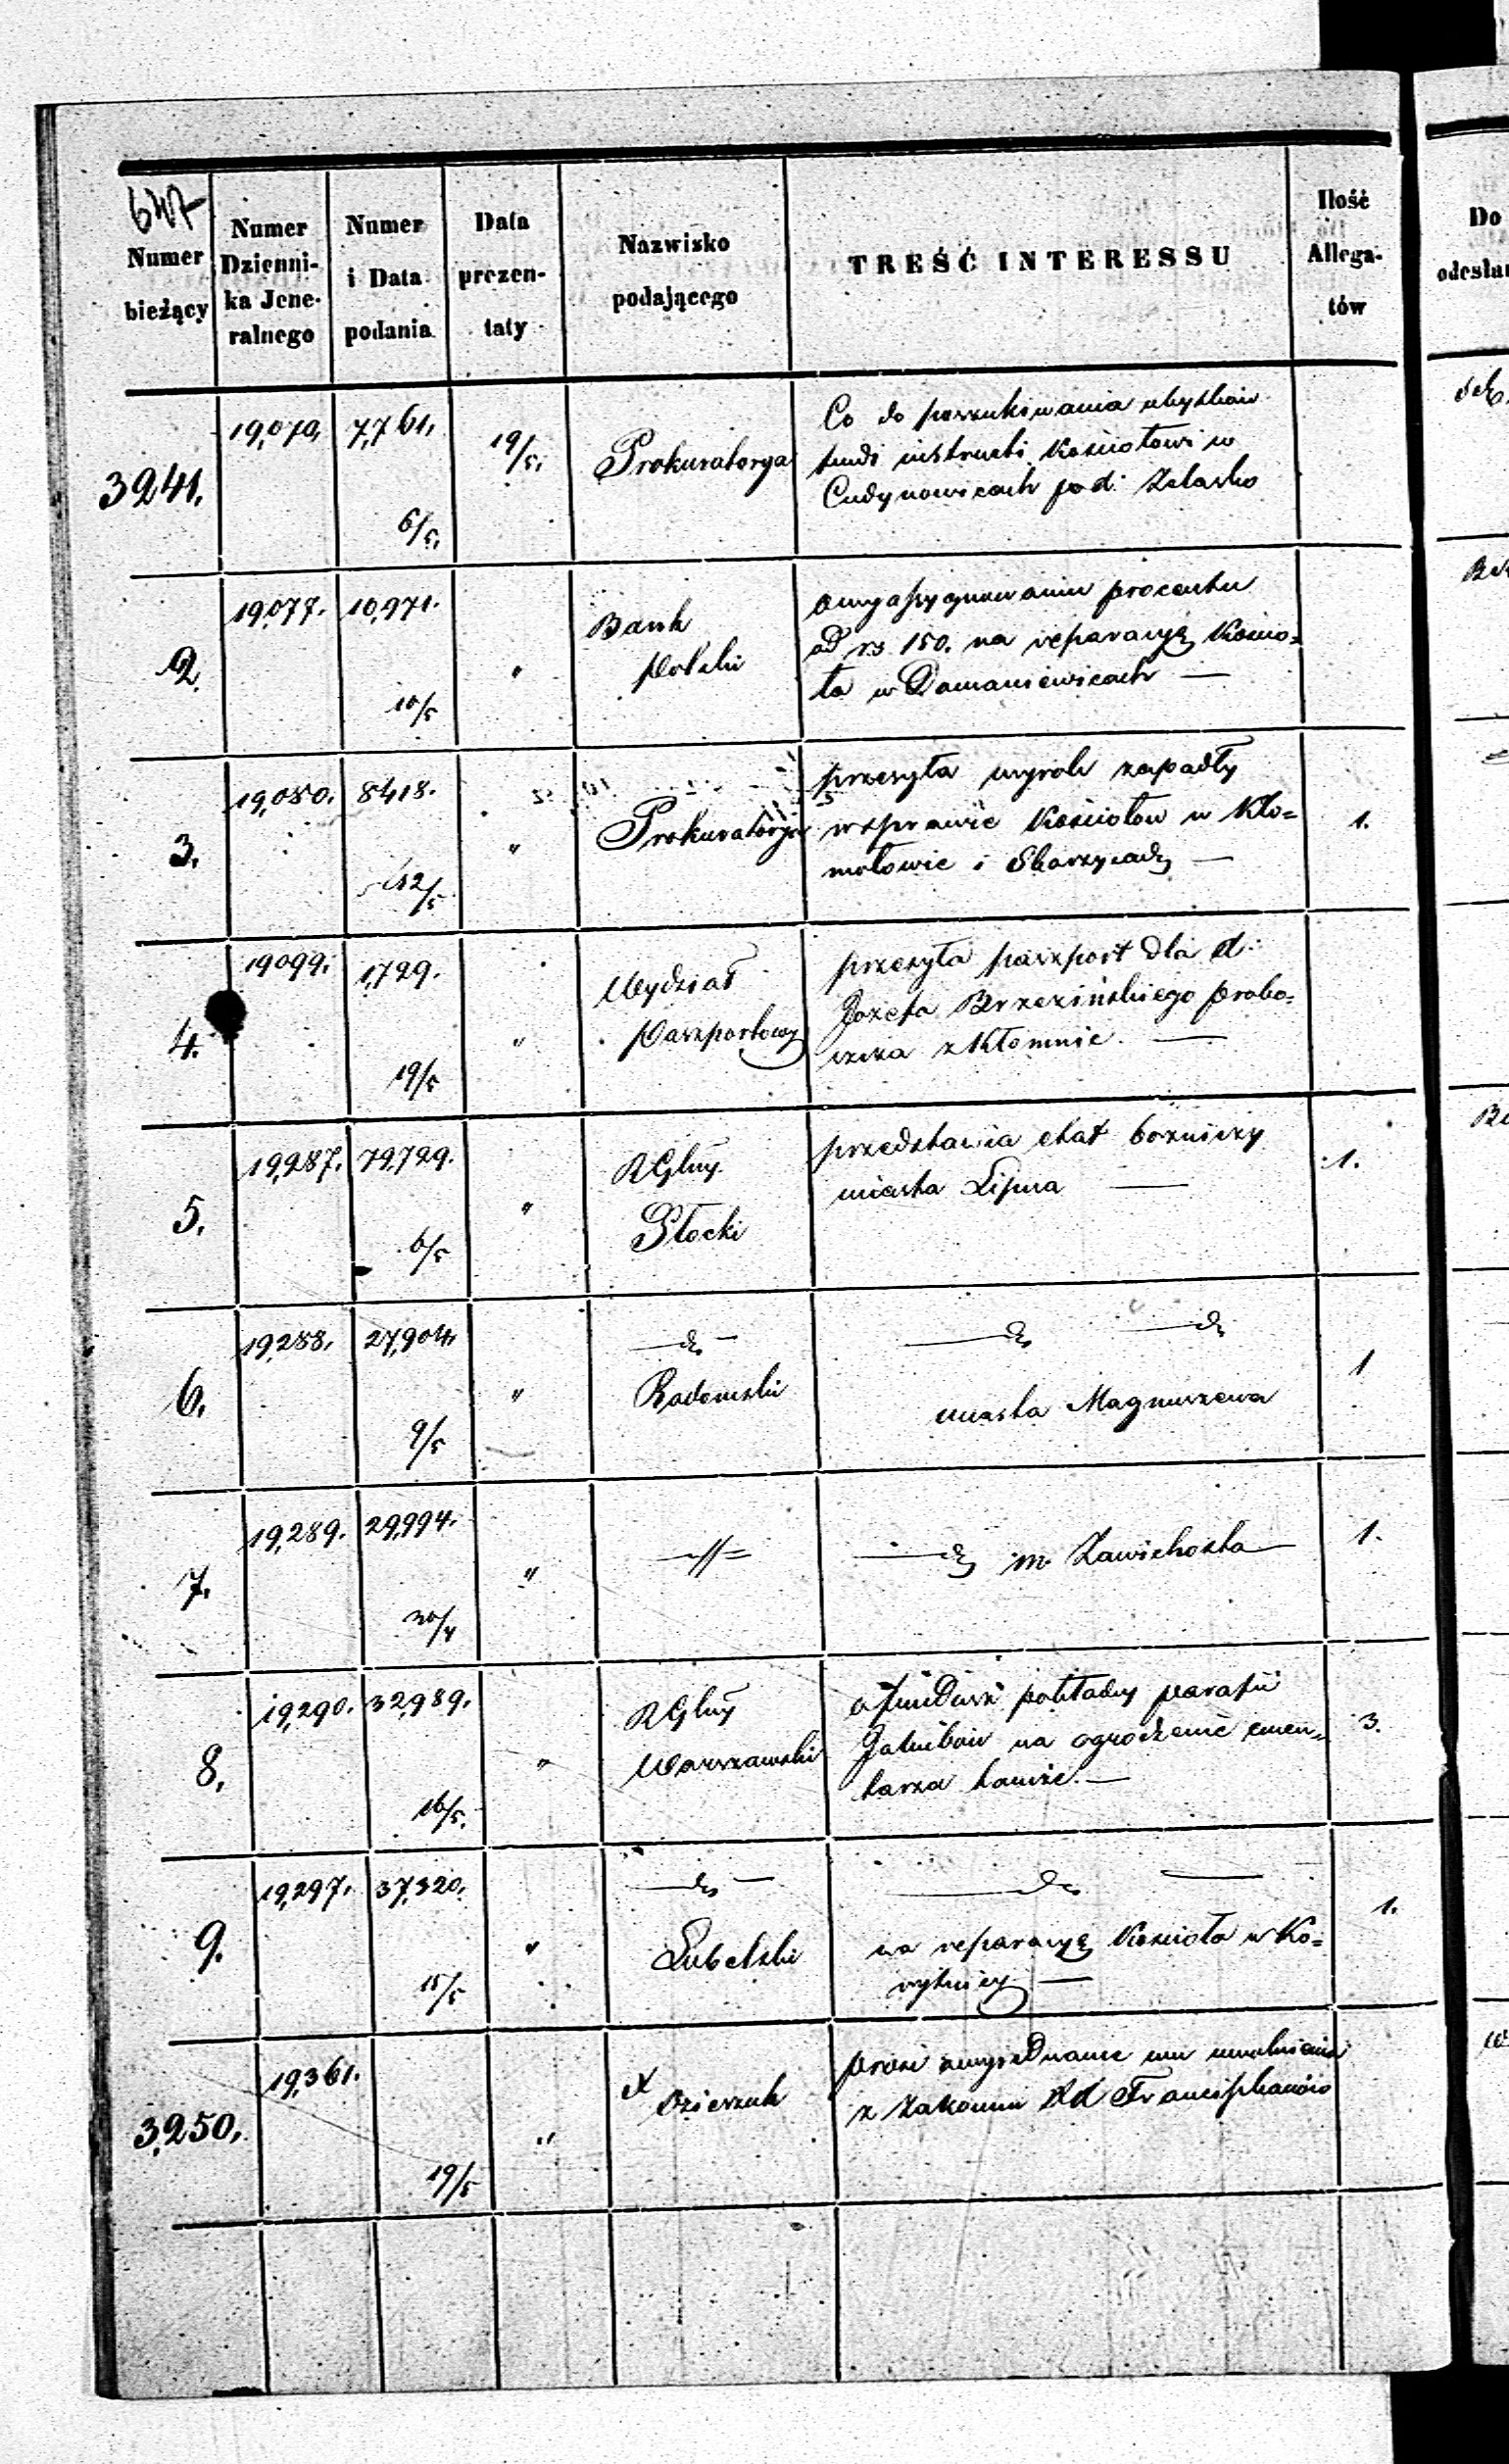 647
Numer bieżący
Numer Dzienni-ka Jene-ralnego
Numer i Data podania
Data prezen-taty
Nazwisko podającego
TREŚĆ INTERESSU
Ilość Allega-tów
Do odesła
3241. 19,070, 7,761, 6/5, 19/5, Prokuratorya
Co do poszukiwania ubytków
fundi instructi Kościołowi w
Cudzynowicach pod: Zelasko
2. 19,077. 10,971. 10/5 " Bank Polski
o wyassygnowaniu procentu
od rs. 150. na reparacyę Kościo=
ła w Domaniewicach —
3. 19,080. 8418. 12/5 " Prokuratorya
przesyła wyrok zapadły
w sprawie Kościołów w Kło=
motowie i Skarzycach — 1.
4. 19099. 1,729. 19/5 " Wydział Paszportowy
przesyła paszport dla X:
Józefa Brzezińskiego probo=
szcza z Kłomnic. —
5. 19,287. 79,729. 6/5 " RGlny Płocki
przedstawia etat bożniczy
miasta Lipna — 1.
6. 19,288. 27,904. 9/5 " — do — Radomski
— do — do
miasta Magnuszewa 1
7. 19,289. 29,994. 30/4 " —//=
— do m. Zawichosta — 1.
8. 19,290. 32,989. 16/5. " RGlny Warszawski
o fundusz pokładny parafii
na ogrodzenie cmen=
tarza tamże. — 3.
9. 19,297. 37,320. 15/5 " — do — Lubelski
— do —
na reparacyę Kościoła w Ko=
rytnicy — 1.
3,250. 19,361. 19/5 " X Dzierzuk
prosi o wyjednanie mu uwolnienia
z Zakonu Franciszkanów